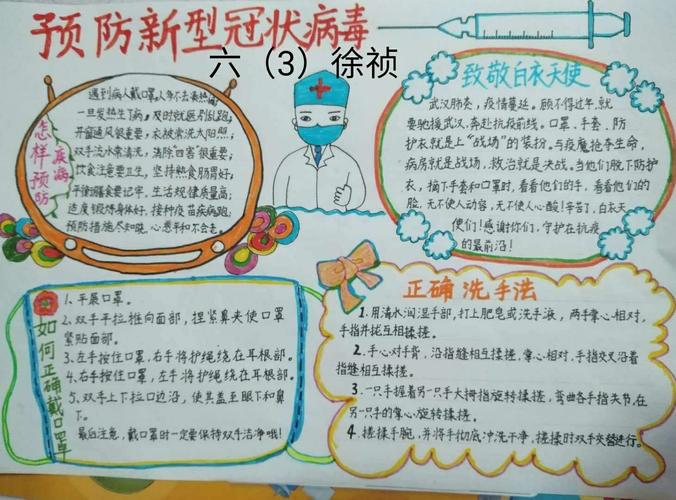 预防新型冠状病毒
六（3）徐祯
怎样预防
疾病
遇到病人戴口罩，人多不去凑热闹；
一旦发热生了病，及时就医别乱跑；
开窗通风很重要，衣被常洗太阳照；
双手流水常清洗，清除"四害"很重要；
饮食注意要卫生，坚持熟食肠胃好；
生活规律质量高；
适度锻炼身体好，接种疫苗疾病跑；
预防措施尽知晓，心态平和不会老。
致敬白衣天使
武汉肺炎，疫情蔓延。顾不得过年，就
要驰援武汉，奔赴抗疫前线。口罩、手套、防
护衣就是上"战场"的装扮。与疫魔抢夺生命，
病房就是战场，救治就是决战。当他们脱下防护
衣，摘下手套和口罩时，看看他们的手，看看他们的
脸，无不使人动容，无不使人心酸！辛苦了，白衣天
使们！感谢你们，守护在抗疫
的最前沿！
如何正确戴口罩
1、平展口罩。
2、双手平拉推向面部，捏紧鼻夹使口罩
紧贴面部。
3、左手按住口罩，右手将护绳绕在耳根部。
4、右手按住口罩，左手将护绳绕在耳根部。
5、双手上下拉口边沿，使其盖至眼下和鼻
下。
最后注意，戴口罩时一定要保持双手洁净哦！
正确洗手法
1、用清水润湿手部，打上肥皂或洗手液，两手掌心相对，
手指并拢互相揉搓。
2、手心对手背，沿指缝相互揉搓，掌心相对，手指交叉沿着
指缝相互揉搓。
3、一只手握着另一只手大拇指旋转揉搓，弯曲各手指关节，在
另一只手的掌心旋转揉搓。
4、揉搓手腕，并将手彻底冲洗干净，揉搓时双手交替进行。